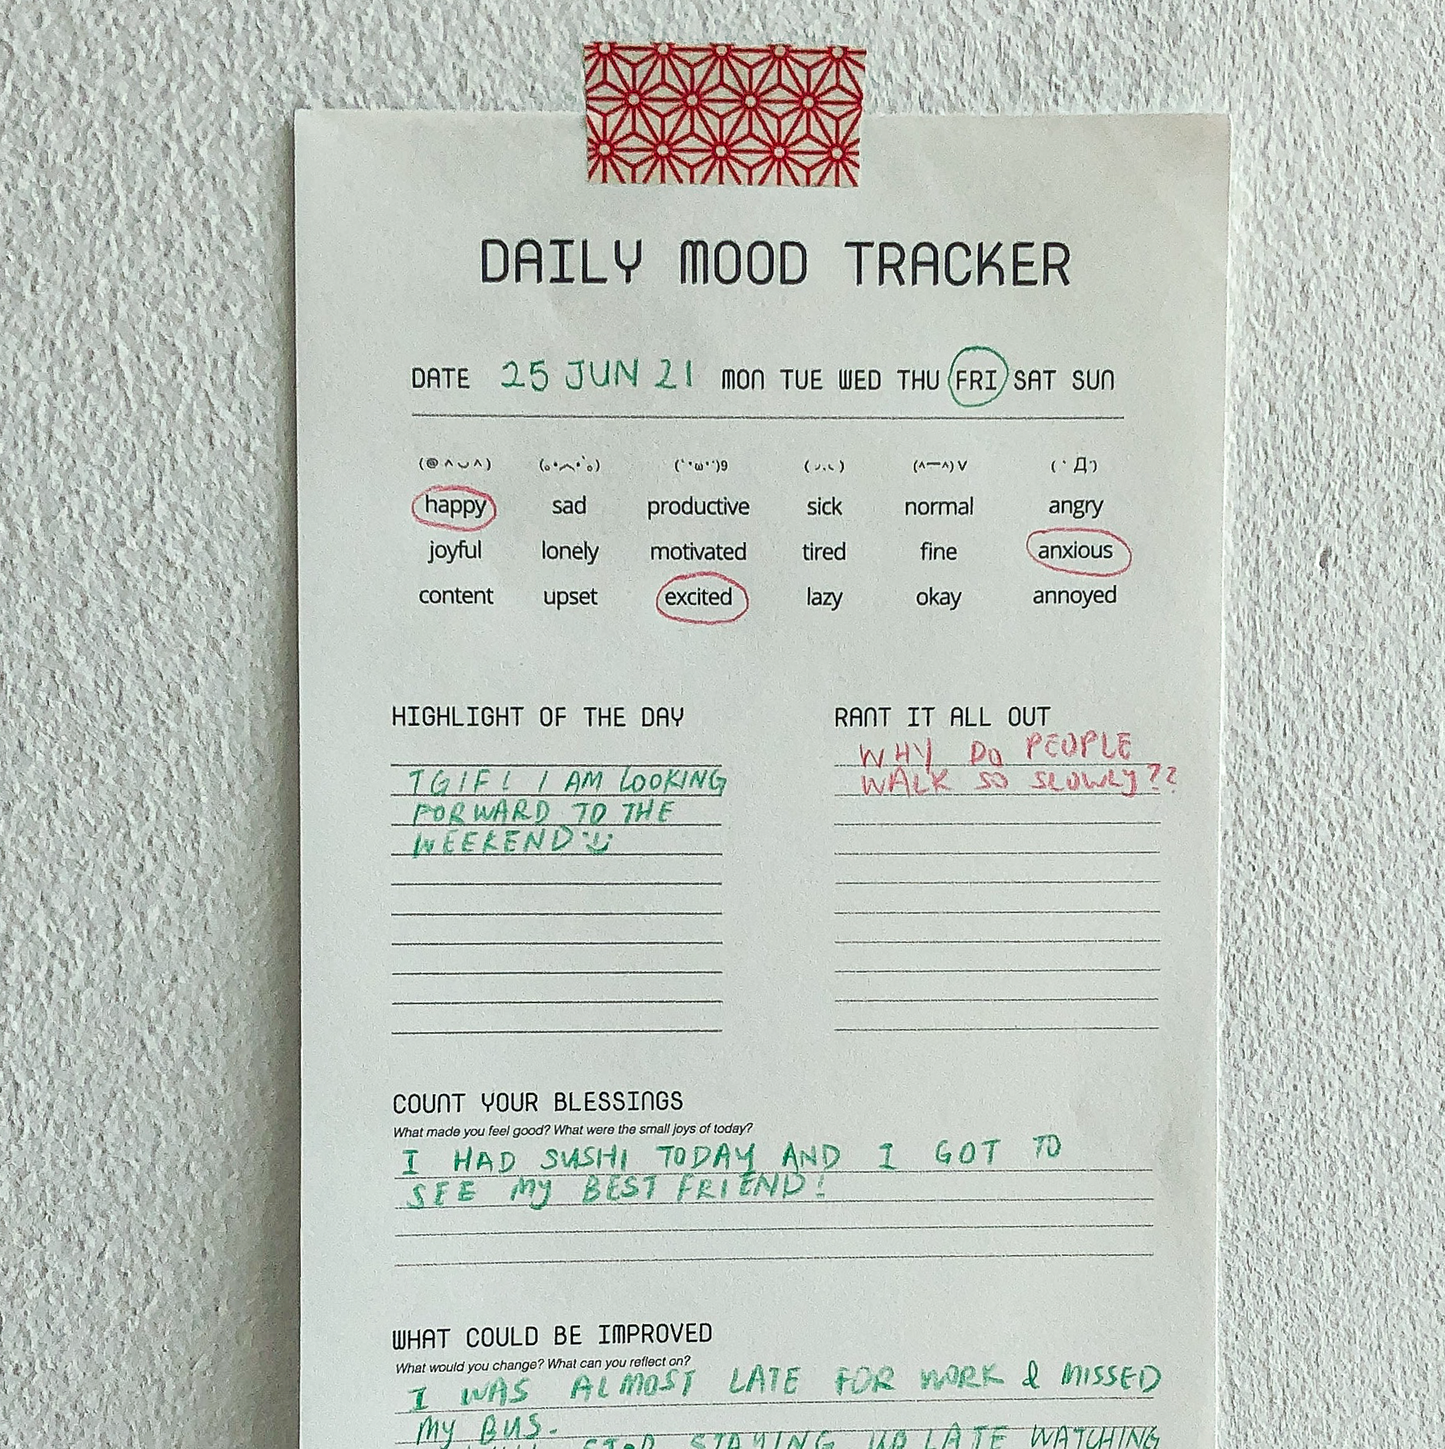 DAILY MOOD TRACKER
DATE 25 JUN 21 MON TUE WED THU FRI SAT SUN
(@^◡^) (｡•︿•`｡) (`•ω•´)9 (◞.◟) (^一^)V (`Д´)
happy sad productive sick normal angry
joyful lonely motivated tired fine anxious
content upset excited lazy okay annoyed
HIGHLIGHT OF THE DAY
TGIF! I AM LOOKING
FORWARD TO THE
WEEKEND :)
RANT IT ALL OUT
WHY DO PEOPLE
WALK SO SLOWLY??
COUNT YOUR BLESSINGS
What made you feel good? What were the small joys of today?
I HAD SUSHI TODAY AND I GOT TO
SEE MY BEST FRIEND!
WHAT COULD BE IMPROVED
What would you change? What can you reflect on?
I WAS ALMOST LATE FOR WORK & MISSED
MY BUS.
STOP STAYING UP LATE WATCHING